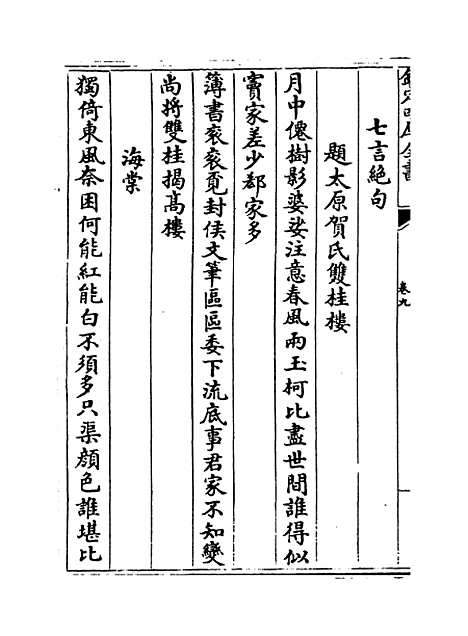 欽定四庫全書
卷九
七言絶句
題太原賀氏雙桂樓
月中僊樹影婆娑注意春風兩玉柯比盡世間誰得似
竇家差少郄家多
簿書衮衮覔封侯文筆區區委下流底事君家不知變
尚將雙桂揭髙樓
海棠
獨倚東風奈困何能紅能白不須多只渠顔色誰堪比